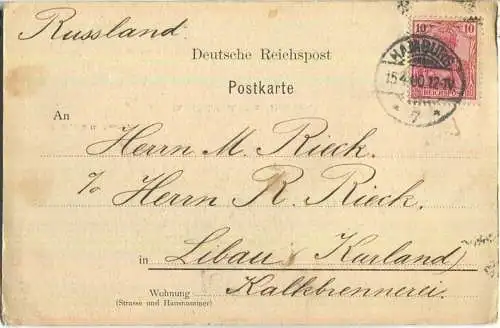 Russland.
10 10
Deutsche Reichspost
HAMBURG
15.4.00.12-1N.
* 7 *
REICHSPOST
Postkarte
An
Herrn M. Rieck.
% Herrn R. Rieck.
in Libau (Kurland)
Kalkbrennerei.
Wohnung
(Strasse und Hausnummer)